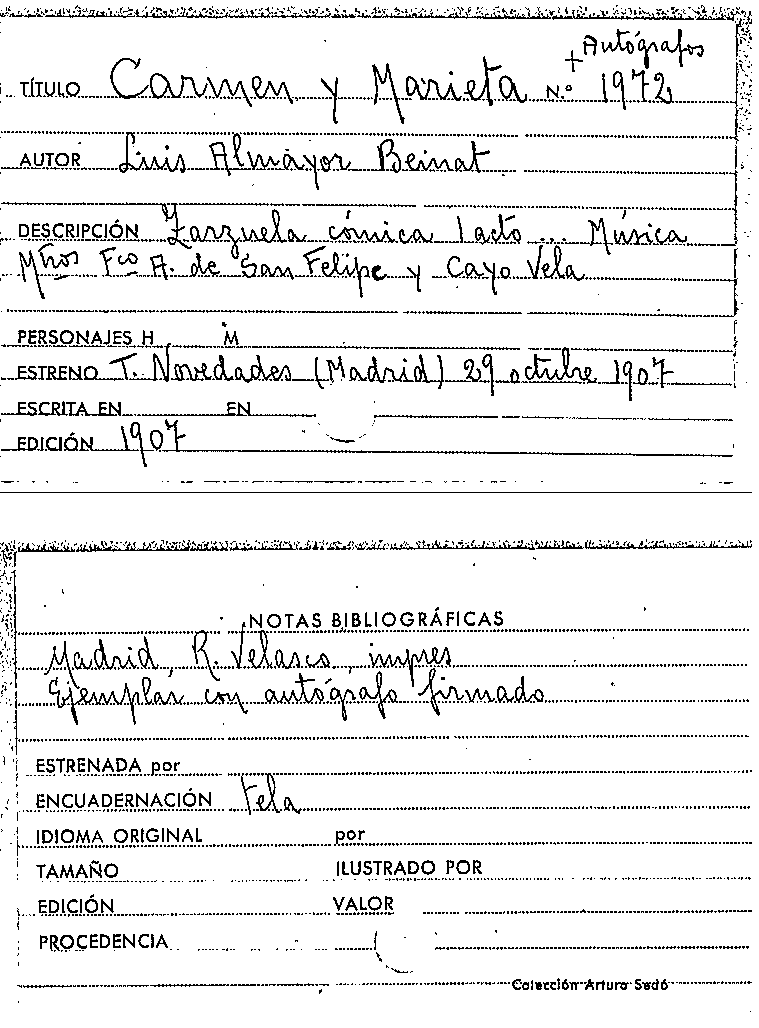 + Autógrafos
TÍTULO Carmen y Marieta N.º 1972
AUTOR Luis Almayor Beinat
DESCRIPCIÓN Zarzuela cómica 1 acto ... Música
Mtros Fco A. de San Felipe y Cayo Vela
PERSONAJES H M
ESTRENO T. Novedades (Madrid) 29 octubre 1907
ESCRITA EN EN
EDICIÓN 1907
NOTAS BIBLIOGRÁFICAS
Madrid, R. Velasco, impres
Ejemplar con autógrafo firmado
ESTRENADA por
ENCUADERNACIÓN tela
IDIOMA ORIGINAL por
TAMAÑO ILUSTRADO POR
EDICIÓN VALOR
PROCEDENCIA
Colección Arturo Sedó